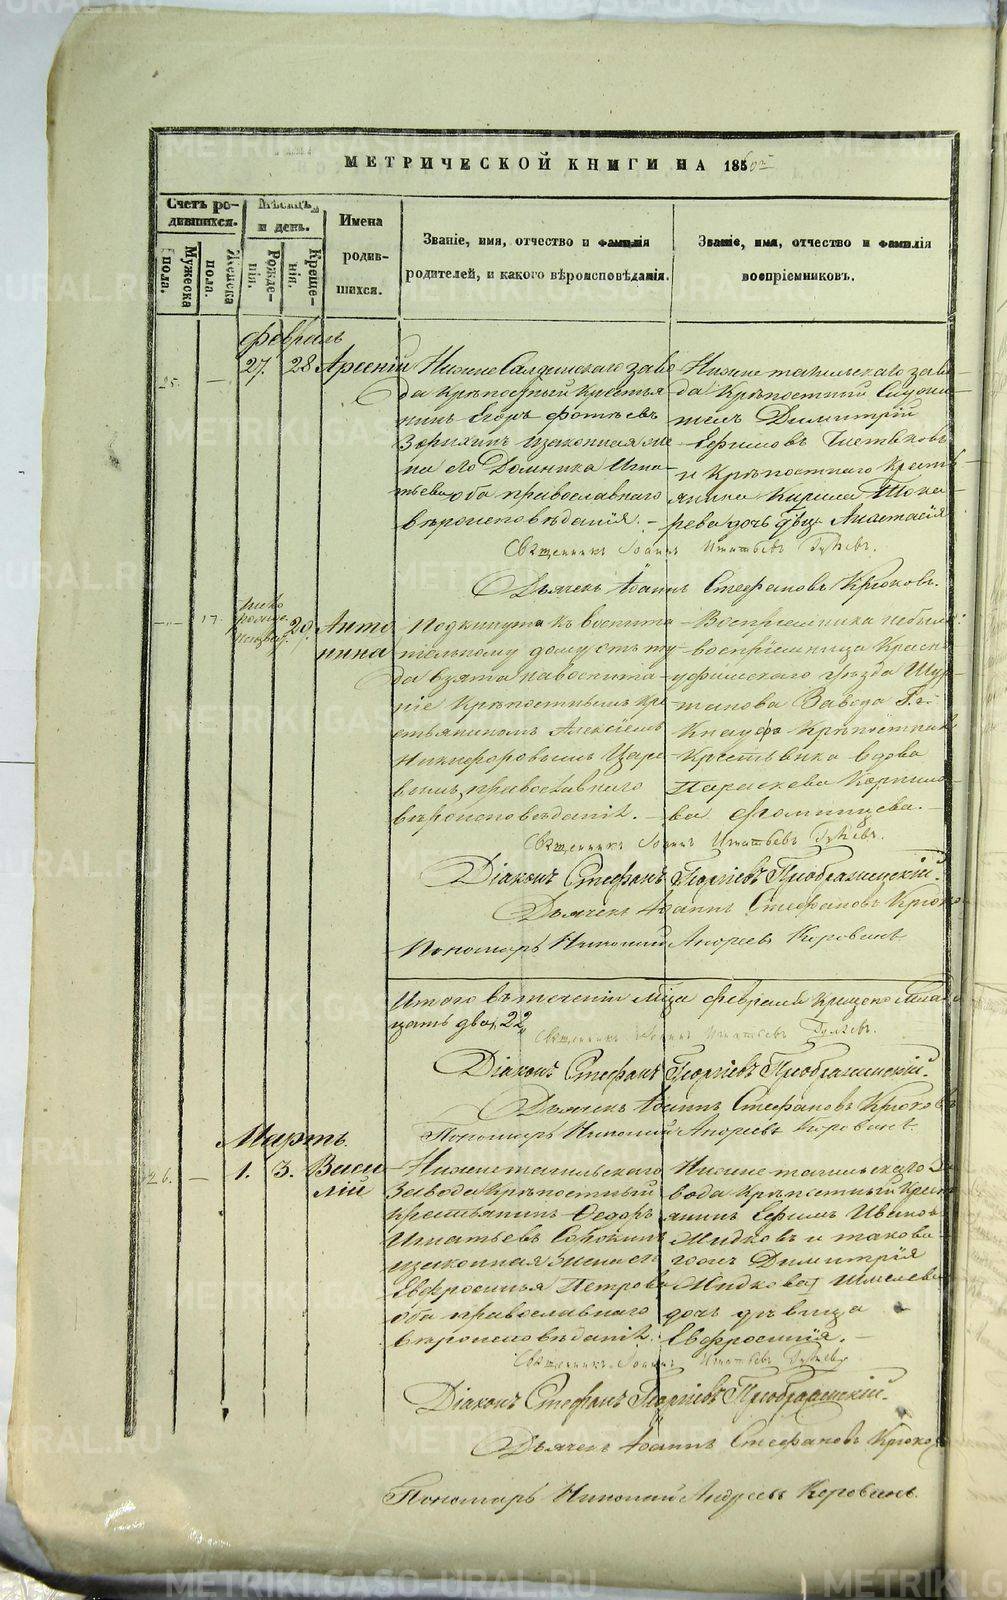 МЕТРИЧЕСКОЙ КНИГИ НА 1860й
Счетъ ро-
дившихся.
Мужеска
пола.
Женска
пола.
Мѣсяцъ
и день.
Рожде-
нія.
Креще-
нія.
Имена
родив-
шихся.
Званіе, имя, отчество и фамилія
родителей, и какого вѣроисповѣданія.
Званіе, имя, отчество и фамилія
воспріемниковъ.
Февраль
25. — 27. 28 Арсеній
Нижне Салдинскаго заво
да Крѣпостный Крестья
нинъ Егоръ Фотіевъ
законная же
на его Домника Игна
тьева оба православнаго
вѣроисповѣданія. —
Нижне тагильскаго заво
да Крѣпостный Служи
тель Димитрій
Ефимовъ
и Крѣпостнаго Кресть
янина Кирила Шока
рева дочь двца Анастасія
Священникъ Іоаннъ Игнатьевъ
Дьячекъ Іоаннъ Стефановъ Крюковъ.
— 17. 29. Анто
нина
Подкинута къ воспита
тельному дому отъ ту
да взята на воспита
ніе Крѣпостнымъ Кре
стьяниномъ Алексіемъ
Никифоровымъ Царе
вымъ, православнаго
вѣроисповѣданія. —
Воспріемника небыло
воспріемница Красно
уфимскаго уѣзда
Завода Г.
Кнауфа Крѣпостная
Крестьянка вдова
Параскева Корнило
ва Фоминцева. —
Священникъ Іоаннъ Игнатьевъ
Діаконъ Стефанъ Георгіевъ Преображенскій.
Дьячекъ Іоаннъ Стефановъ Крюко
Пономарь Николай Андреевъ Коровинъ
Итого въ теченіи мца февраля крещено
цать два, 22
Священникъ Іоаннъ Игнатьевъ
Діаконъ Стефанъ Георгіевъ Преображенскій.
Дьячекъ Іоаннъ Стефановъ Крюковъ
Пономарь Николай Андреевъ Коровинъ.
Мартъ.
26. — 1. 3. Васи
лій
Нижнетагильскаго
Завода Крѣпостный
крестьянинъ Ѳедоръ
Игнатьевъ Сорокинъ
и законная жена его
Евфросинья Петрова
оба православнаго
вѣроисповѣданія.
Нижне тагильскаго За
вода Крѣпостный Крест
янинъ Ефимъ Иванов
Мидковъ и таково
гожъ Димитрія
дочь дѣвица
Евфросинія. —
Священникъ Іоаннъ Игнатьевъ
Діаконъ Стефанъ Георгіевъ Преображенскій.
Дьячекъ Іоаннъ Стефановъ Крюков
Пономарь Николай Андреевъ Коровинъ.
METRIKI.GASO-URAL.RU